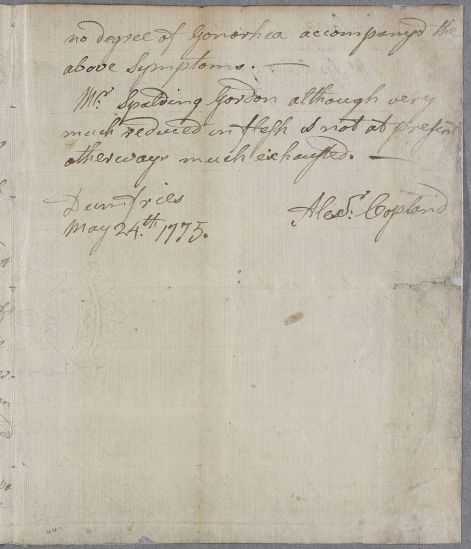 no degree of Gonorhea accompanyd the
above Symptoms. —
Mr. Spalding Gordon although very
much reduced in flesh is not at present
otherways much exhausted. —
Dumfries
May 24.th 1775.
Alexr. Copland